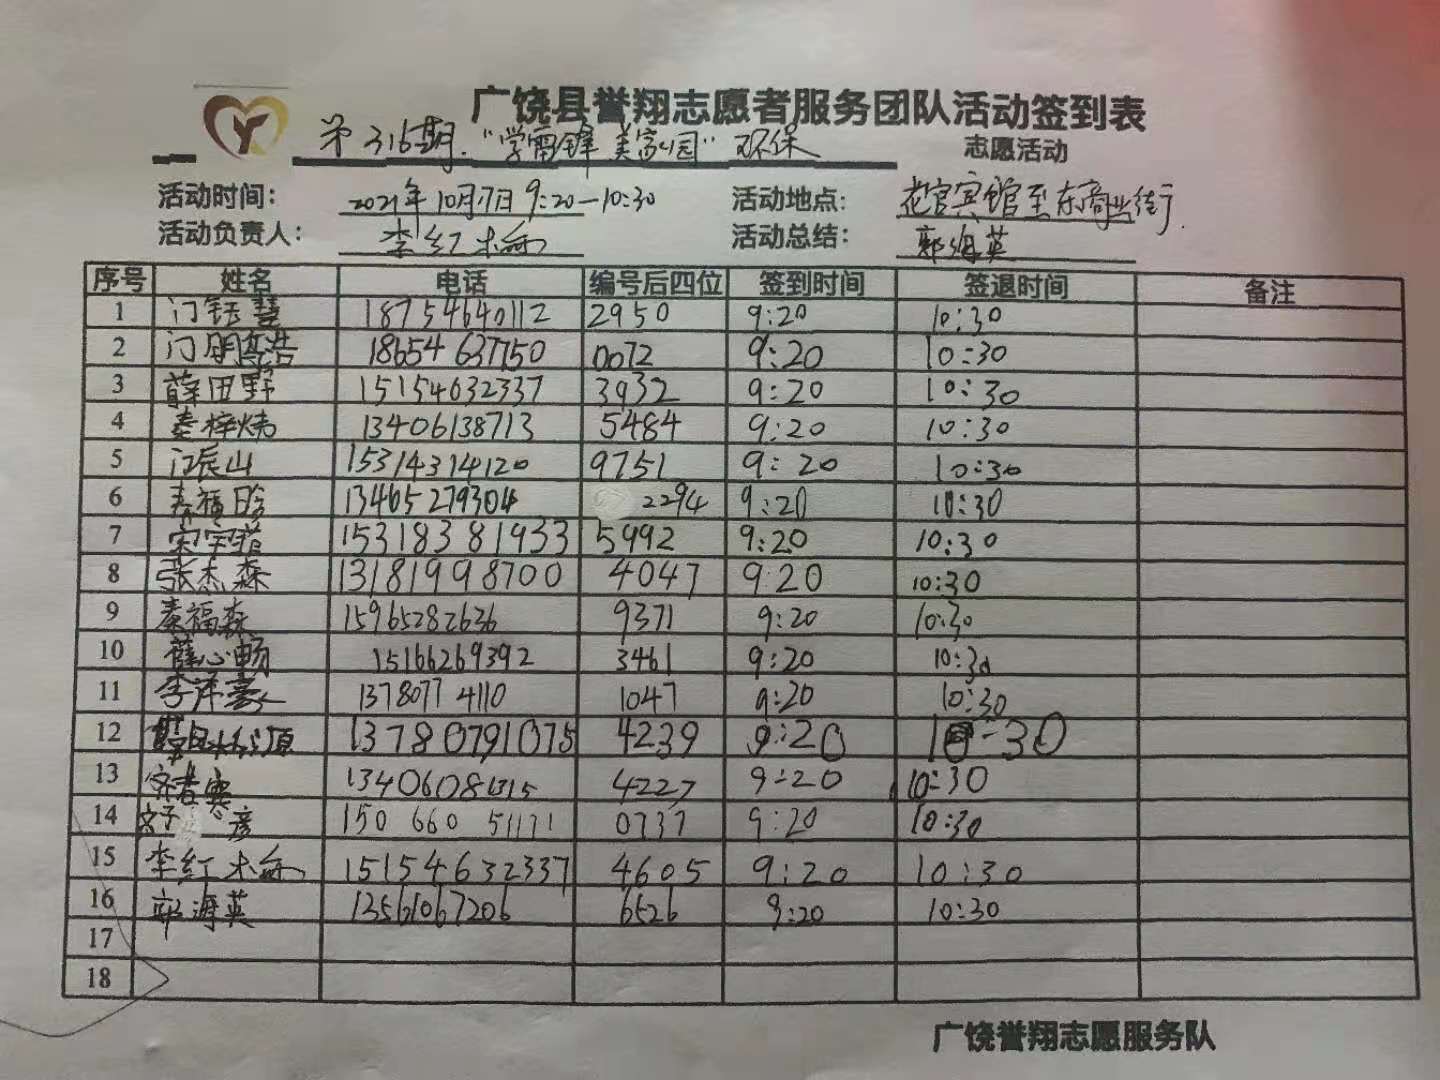 广饶县誉翔志愿者服务团队活动签到表
第316期."学雷锋 美家园"环保 志愿活动
活动时间: 2021年10月17日 9:20—10:30 活动地点: 花官宾馆至东商业街
活动负责人: 李红梅 活动总结: 郭海英
序号 姓名 电话 编号后四位 签到时间 签退时间 备注
1 门钰慧 18754640112 2950 9:20 10:30
2 门明浩 18654637750 0072 9:20 10:30
3 薛田野 15154632337 3932 9:20 10:30
4 秦梓炜 13406138713 5484 9:20 10:30
5 门辰山 15314314120 9751 9:20 10:30
6 秦福晗 13465279304 2294 9:20 10:30
7 15318381933 5992 9:20 10:30
8 张杰森 13181998700 4047 9:20 10:30
9 秦福森 15965282636 9371 9:20 10:30
10 薛心畅 15166269392 3461 9:20 10:30
11 李泽豪 13780774110 1047 9:20 10:30
12 13780791075 4239 9:20 10-30
13 13406081315 4227 9:20 10:30
14 彦 150 660 51171 0737 9:20 10:30
15 李红梅 15154632337 4605 9:20 10:30
16 郭海英 13561067206 6526 9:20 10:30
17
18
广饶誉翔志愿服务队